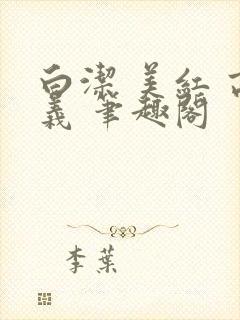 白潔 美紅 高
義 筆趣閣
李葉